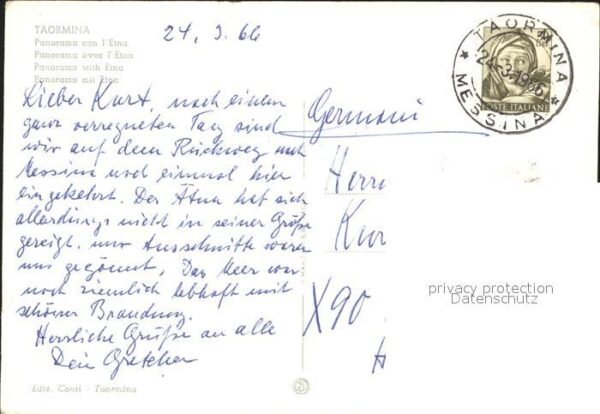 TAORMINA
Panorama con l'Etna
Panorama avec l'Etna
Panorama with Etna
Panorama mit Etna
24. 3. 66
Lieber Kurt, nach einem
ganz verregneten Tag sind
wir auf dem Rückweg nach
Messina noch einmal hier
eingekehrt. Der Ätna hat sich
allerdings nicht in seiner Größe
gezeigt, nur Ausschnitte waren
uns gegönnt. Das Meer war
noch ziemlich lebhaft mit
schöner Brandung.
Herzliche Grüße an alle
Dein Gretchen
Ediz. Conti - Taormina
TAORMINA
24-3-1966
MESSINA
POSTE ITALIANE
Germani
Herrn
Kur
X90
privacy protection
Datenschutz